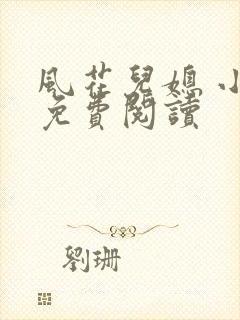 風花兒媳小
免費閱讀
劉珊